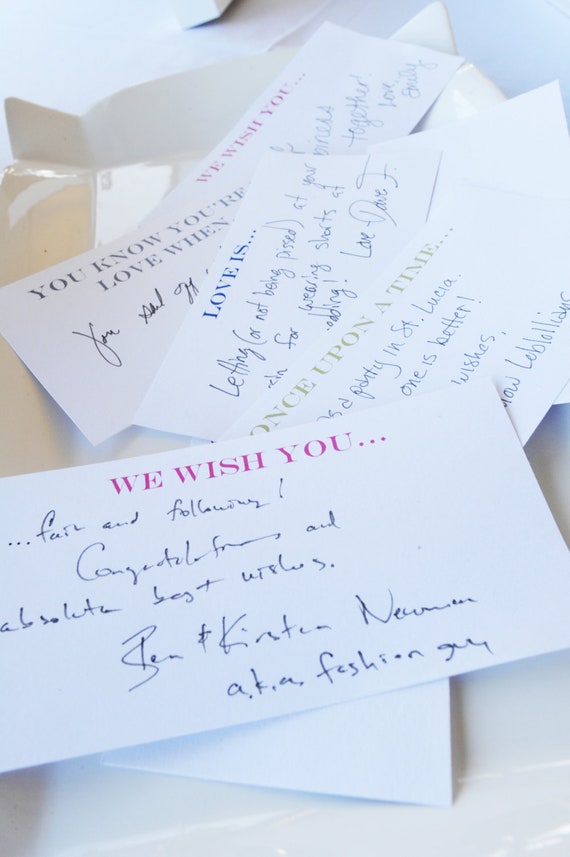 WE WISH YOU...
together!
Love,
Emily
YOU KNOW YOU'RE
LOVE WHEN
You said
LOVE IS...
Letting (or not being pissed) at your
for wearing shorts at
Love Dave F.
ONCE UPON A TIME...
a party in St Lucia.
one is better!
wishes,
WE WISH YOU...
...fair and following!
Congratulations and
absolute best wishes.
Ben & Kirsten Newman
a.k.a. fashion guy